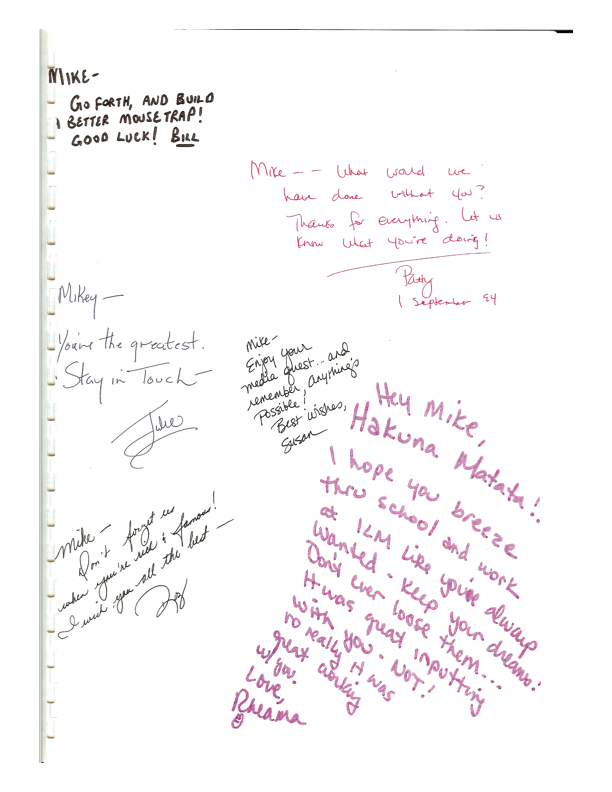 MIKE-
GO FORTH, AND BUILD
A BETTER MOUSE TRAP!
GOOD LUCK! BILL
Mike -- What would we
have done without you?
Thanks for everything. Let us
know what you're doing!
Patty
1 September 94
Mikey —
You're the greatest.
Stay in Touch —
Julie
Mike-
Enjoy your
media quest... and
remember, anything's
Possible!
Best wishes,
Susan
Hey Mike,
Hakuna Matata!..
I hope you breeze
thru school and work
at ILM like you've always
wanted - keep your dreams.
Don't ever loose them...
It was great inputting
with you - NOT!
no really it was
great working
w/you.
Love,
Rheama
Mike —
Don't forget us
when you're rich & famous!
I wish you all the best —